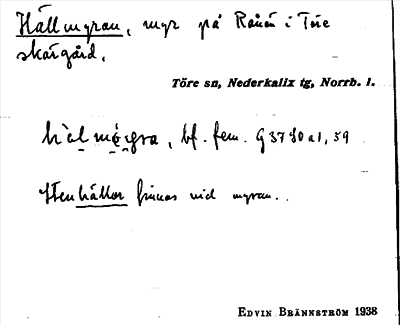 Hällmyran, myr på Rånön i Töre
skärgård.
Töre sn, Nederkalix tg, Norrb. l.
bf. fem. G 37 S0 a1, 59
Stenhällor finnas vid myran.
EDVIN BRÄNNSTRÖM 1938